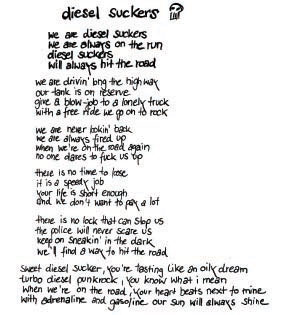 diesel suckers
we are diesel suckers
we are always on the run
diesel suckers
will always hit the road
we are drivin' long the highway
our tank is on reserve
give a blow-job to a lonely truck
with a free ride we go on to rock
we are never lookin' back
we are always fired up
when we're on the road again
no one dares to fuck us up
there is no time to lose
it is a speedy job
your life is short enough
and we don't want to pay a lot
there is no lock that can stop us
the police will never scare us
keep on sneakin' in the dark
we'll find a way to hit the road
sweet diesel sucker, you're tasting like an oily dream
turbo diesel punkrock, you know what i mean
when we're on the road, your heart beats next to mine
with adrenaline and gasoline our sun will always shine